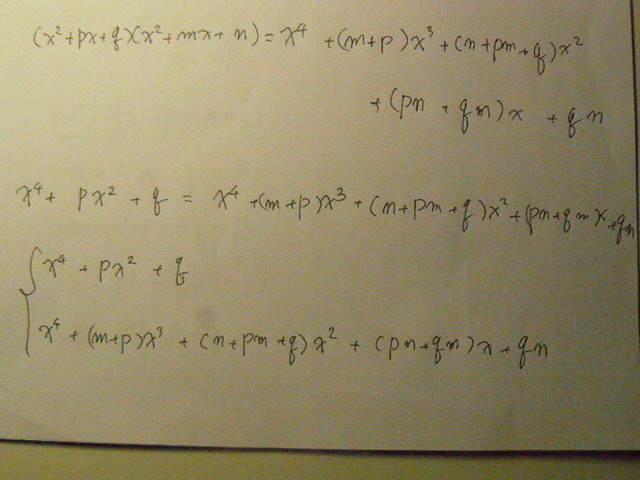 (x²+px+q)(x²+mx+n)=x⁴ +(m+p)x³+(n+pm+q)x²
+(pn+qm)x +qn
x⁴+ px²+q = x⁴+(m+p)x³+(n+pm+q)x²+(pn+qm)x+qn
x⁴+px²+q
x⁴+(m+p)x³+(n+pm+q)x²+(pn+qm)x+qn